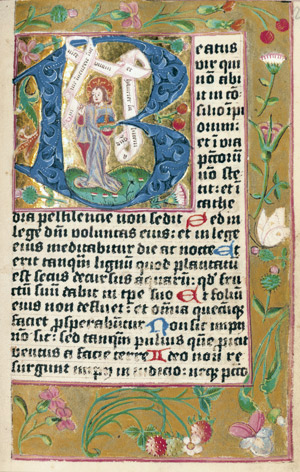 Beatus
vir qui
nō abi
it in cō
silio īpi
orum:
et ī via
pctōrū
nō ste
tit: et ī
cathe
dra pestilencie non sedit Sed in
lege dnī voluntas eius: et in lege
eius meditabitur die ac nocte Et
erit tanqm̄ lignum quod plantatū
est secus decursus aquarū: qd' fru
ctum suū dabit in tpe suo Et foliū
eius non defluet: et omnia quecūqꝫ
faciet prosperabūtur Non sic impij
nō sic: sed tanqm̄ puluis quē proicit
ventus a facie terre Ideo non re
surgunt impij in iudicio: neqꝫ